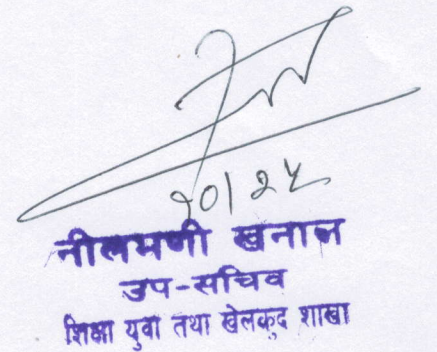 १०।२५
नीलमणी खनाल
उप-सचिव
शिक्षा युवा तथा खेलकुद शाखा